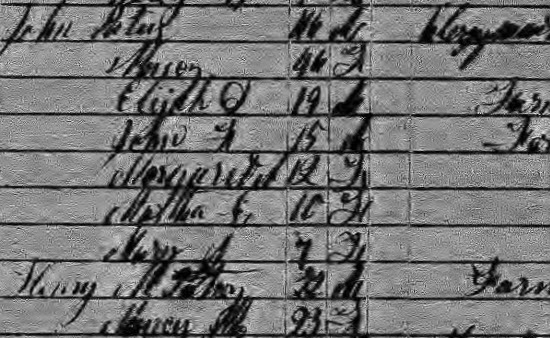 John 46 M Clergyman
Nancy 46 F
Elijah D 19 M Farm
John F 15 M Far
Margaret M 12 F
Martha E 10 F
Mary A 7 F
Henry M 22 M Farm
Nancy M 23 F